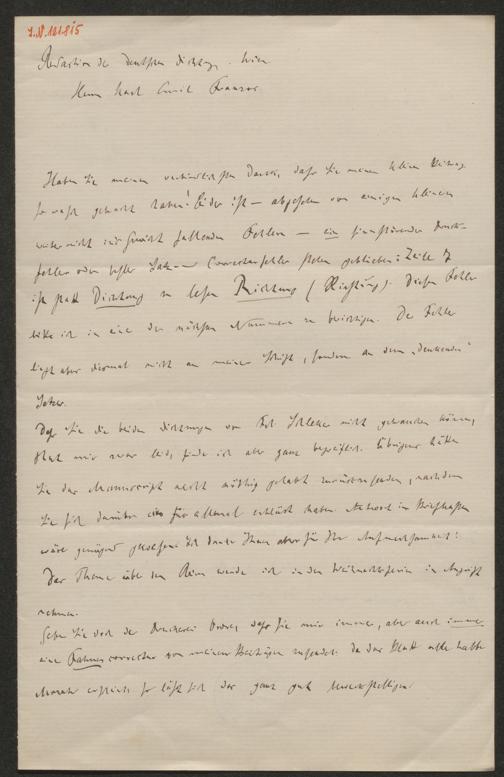 J.N. 121.815
Redaction der Deutschen Dichtung. Wien
Herrn Karl Emil Franzos
Haben Sie meinen verbindlichsten Dank, daß Sie meinen kleinen Beitrag
so rasch gebracht haben! Leider ist — abgesehen von einigen kleinen
weiter nicht ins Gewicht fallenden Fehlern — ein sinnstörender Druck-
fehler oder besser Satz- und Correcturfehler stehen geblieben: Zeile 7
ist statt Dichtung zu lesen Richtung (Richtung). Diesen Fehler
bitte ich in einer der nächsten Nummern zu berichtigen. Der Fehler
liegt aber diesmal nicht an meiner Schrift, sondern an dem „denkenden"
Setzer.
Daß Sie die beiden Dichtungen von Frl. nicht gebrauchen können,
thut mir zwar leid, finde ich aber ganz begreiflich. Übrigens hätten
Sie das Manuscript nicht nöthig gehabt zurückzusenden, nachdem
Sie sich darüber ein für allemal erklärt haben. Antwort im Briefkasten
wäre genügend gewesen. Ich danke Ihnen aber für Ihre Aufmerksamkeit!
Das Thema über den Reim werde ich in den Weihnachtsferien in Angriff
nehmen.
Geben Sie doch der Druckerei Ordre, daß sie mir immer, aber auch immer
eine Fahnencorrectur von meinen Beiträgen zusendet. Da das Blatt alle halbe
Monate erscheint, so läßt sich das ganz gut bewerkstelligen.